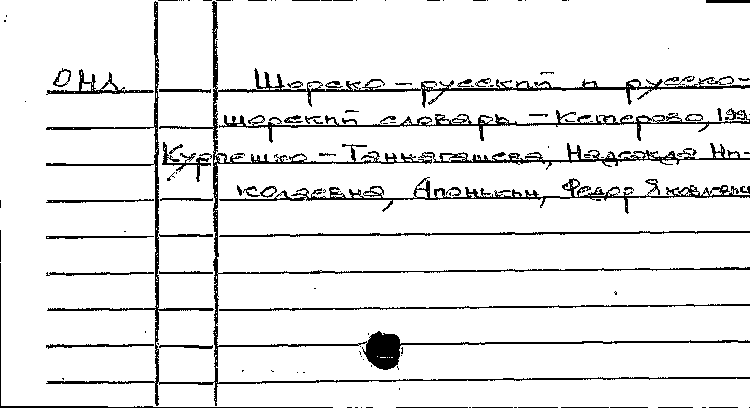 ОНЛ Шорско-русский и русско-
шорский словарь. - Кемерово, 199
Курпешко-Таннагашева, Надежда Ни-
колаевна, Апонькин, Федор Яковлевич